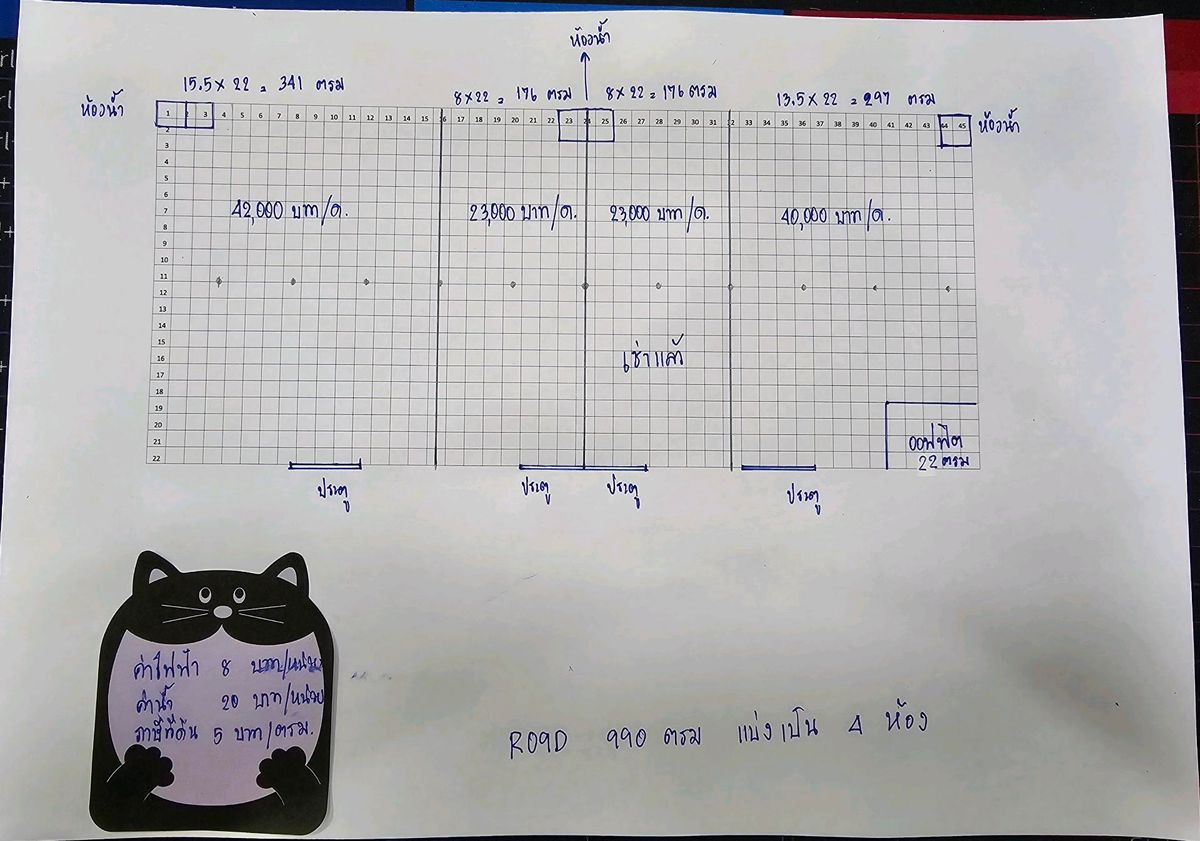 ห้องน้ำ
15.5 x 22 = 341 ตรม
8 x 22 = 176 ตรม
8 x 22 = 176 ตรม
13.5 x 22 = 297 ตรม
ห้องน้ำ
ห้องน้ำ
1 2 3 4 5 6 7 8 9 10 11 12 13 14 15 16 17 18 19 20 21 22 23 24 25 26 27 28 29 30 31 32 33 34 35 36 37 38 39 40 41 42 43 44 45
2
3
4
5
6
42,000 บาท/ด. 23,000 บาท/ด. 23,000 บาท/ด. 40,000 บาท/ด.
7
8
9
10
11
12
13
14
15
เช่าแล้ว
16
17
18
19
20
ออฟฟิต
21
22 ตรม
22
ประตู ประตู ประตู ประตู
ค่าไฟฟ้า 8 บาท/หน่วย
ค่าน้ำ 20 บาท/หน่วย
ภาษีที่ดิน 5 บาท/ตรม.
R09D 990 ตรม แบ่งเป็น 4 ห้อง